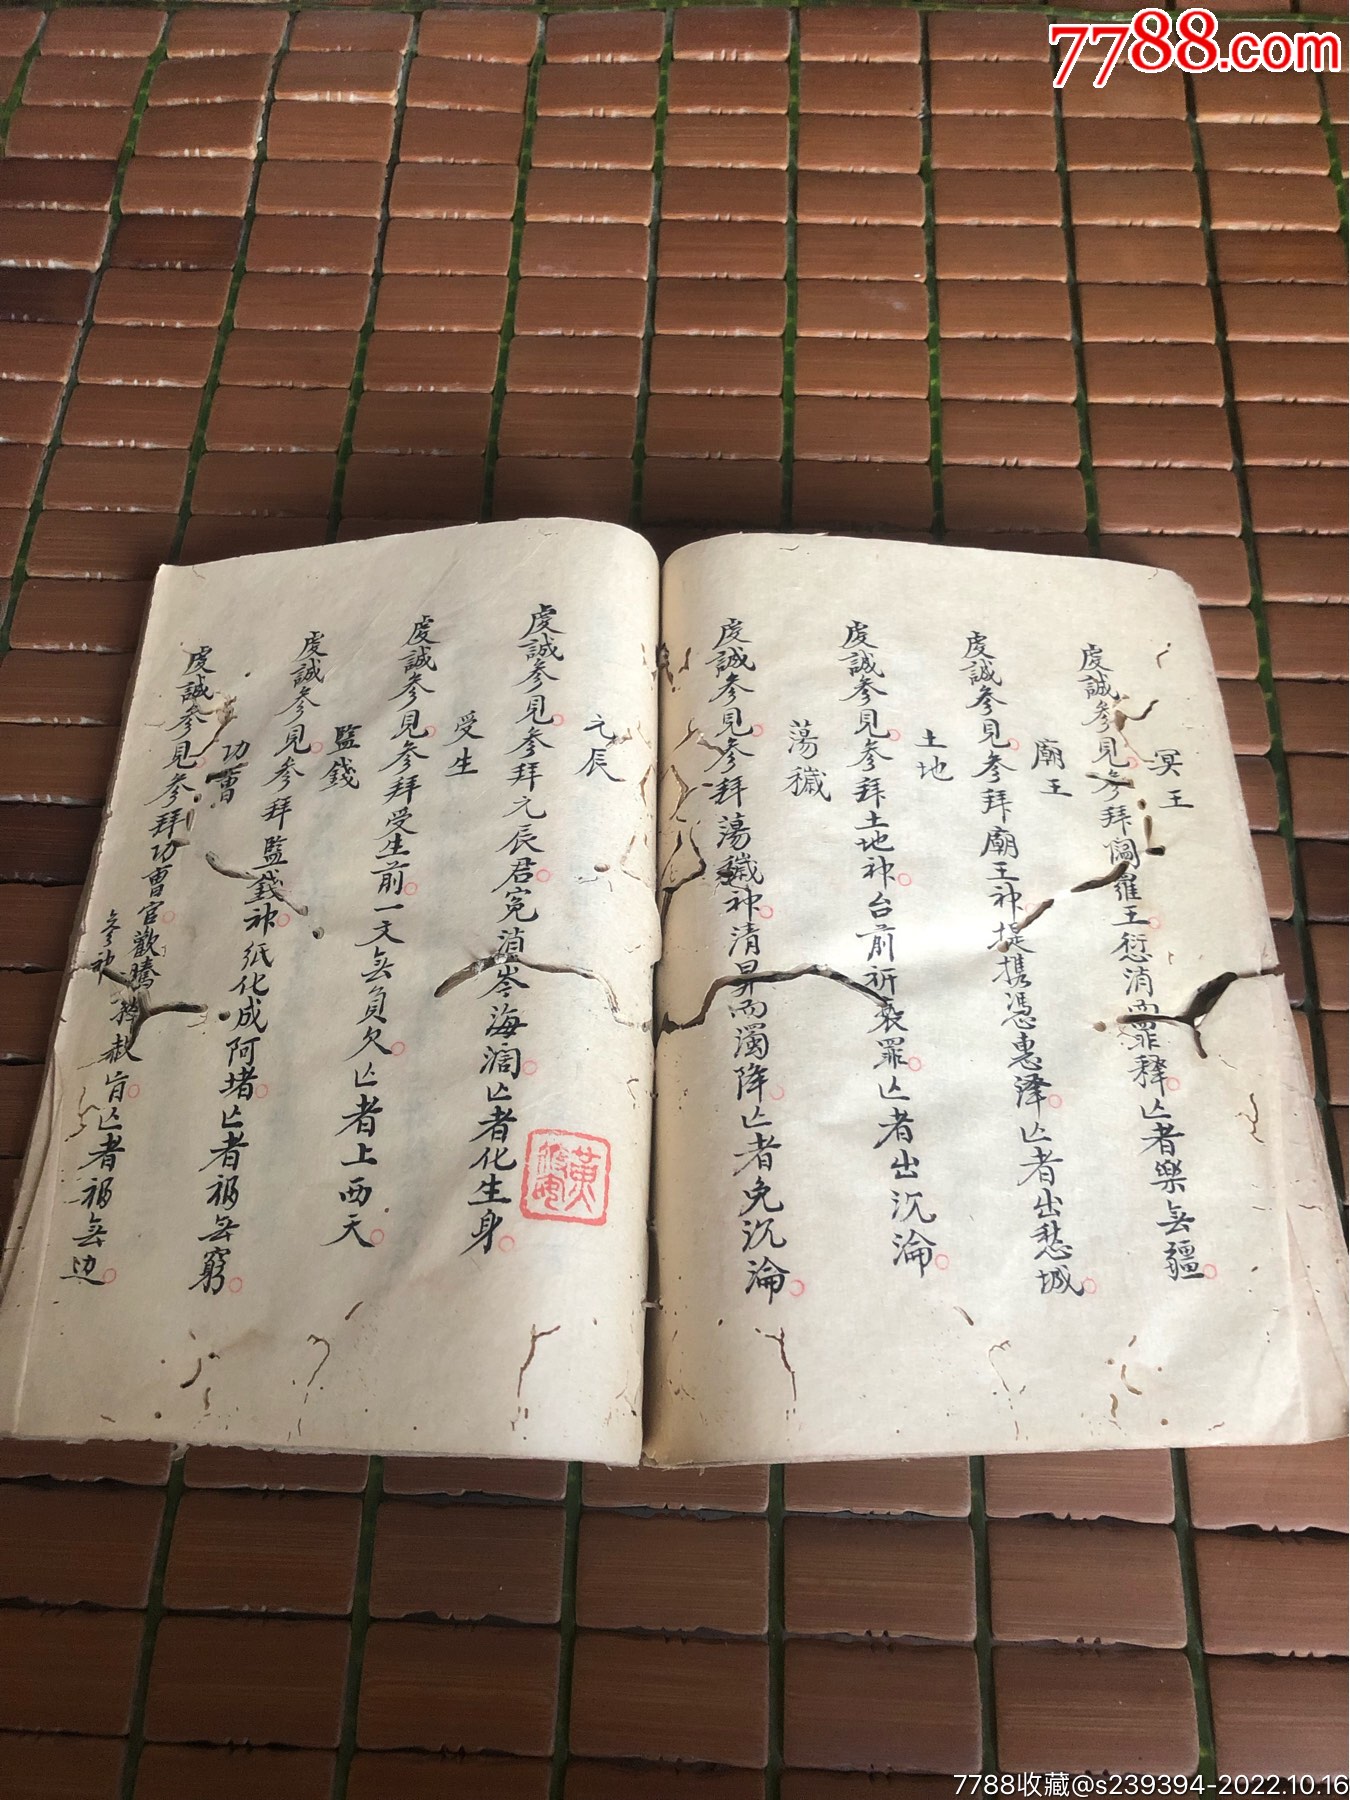 7788.com
冥王
虔誠參見參拜閻羅王愆消而罪釋亡者樂無疆
廟王
虔誠參見參拜廟王神提携憑惠澤亡者出愁城
土地
虔誠參見參拜土地神台前祈裒罪亡者出沉淪
蕩穢
虔誠參見參拜蕩穢神清昇而濁降亡者免沉淪
元辰
虔誠參見參拜元辰君寃岑海濶亡者化生身
黄
受生
虔誠參見參拜受生前一文無負欠亡者上西天
監錢
虔誠參見參拜監錢神紙化成阿堵亡者福無窮
功曹
虔誠參見參拜功曹官歡騰赦旨亡者福無边
參神
7788收藏@s239394-2022.10.16